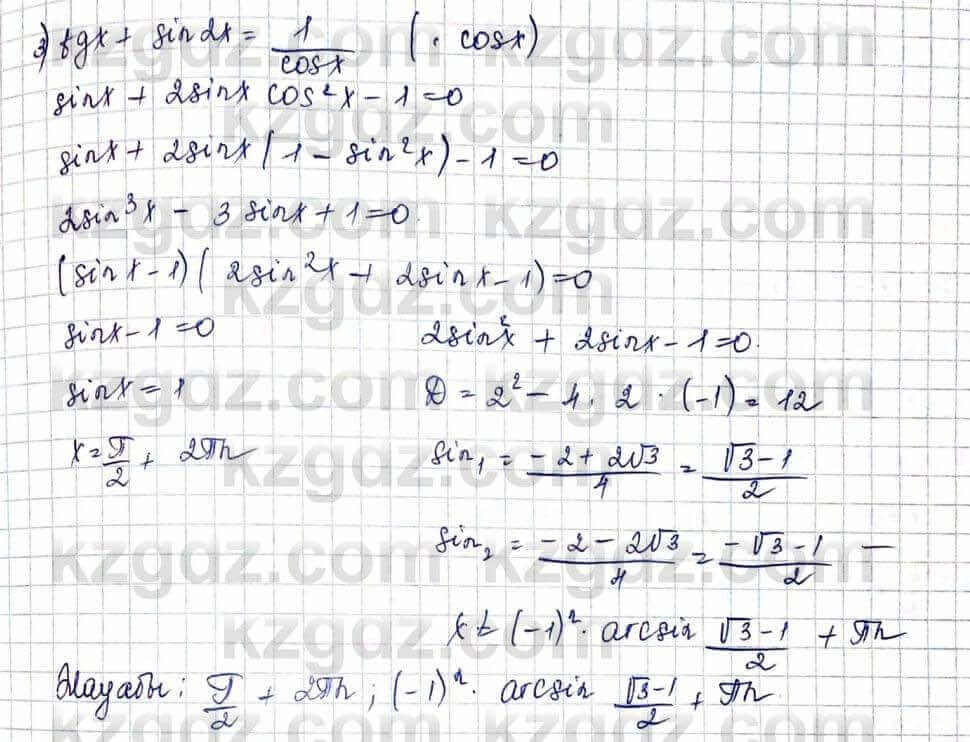 3) tgx + sin2x = 1/cosx (· cosx)
sinx + 2sinx cos²x - 1 = 0
sinx + 2sinx(1 - sin²x) - 1 = 0
2sin³x - 3sinx + 1 = 0.
(sinx - 1)(2sin²x + 2sinx - 1) = 0
sinx - 1 = 0 2sin²x + 2sinx - 1 = 0.
sinx = 1 D = 2² - 4 · 2 · (-1) = 12
x = π/2 + 2πn sin₁ = (-2 + 2√3)/4 = (√3 - 1)/2
sin₂ = (-2 - 2√3)/4 = (-√3 - 1)/2 —
x = (-1)ⁿ · arcsin (√3 - 1)/2 + πn
Жауабы: π/2 + 2πn; (-1)ⁿ · arcsin (√3 - 1)/2 + πn
kzgdz.com